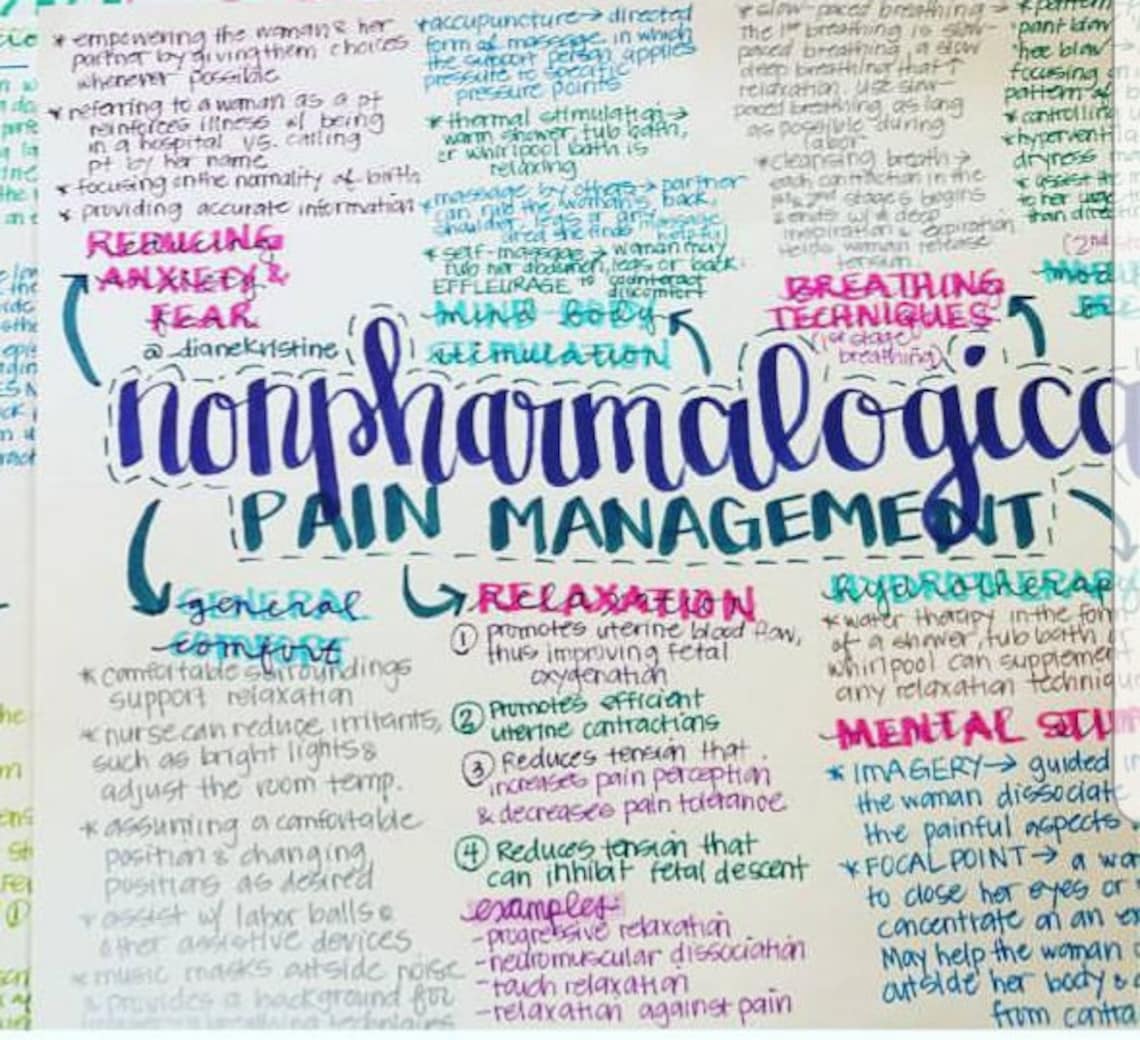 * empowering the woman & her
partner by giving them choices
whenever possible
* referring to a woman as a pt
reinforces illness w/ being
in a hospital vs. calling
pt by her name
* focusing on the normality of birth
* providing accurate information
REDUCING
ANXIETY &
FEAR
@dianekristine
* accupuncture → directed
form of massage in which
the support person applies
pressure to specific
pressure points
* thermal stimulation →
warm shower, tub bath,
or whirlpool bath is
relaxing
massage by others → partner
can rub the woman's back,
shoulders, legs or any
area she finds helpful
massage
* self-massage → woman may
rub her abdomen, legs or back.
EFFLEURAGE to counteract
discomfort
MIND BODY
stimulation
* slow-paced breathing →
the 1st breathing is slow-
paced breathing, a slow
deep breathing that ↑
relaxation. use slow-
paced breathing as long
as possible during
labor
* cleansing breath →
each contraction in the
1st & 2nd stages begins
& ends w/ a deep
inspiration & expiration
Helps woman release
tension.
BREATHING
TECHNIQUES
(1st stage
breathing)
"pant blow
"hee blow
focusing
pattern
* controlling
* hyperventi
dryness
* assist
to her urge
than
(2nd
nonpharmalogica
PAIN MANAGEMENT
general
comfort
* comfortable surroundings
support relaxation
* nurse can reduce irritants,
such as bright lights &
adjust the room temp.
* assuming a comfortable
position & changing
positions as desired
* assist w/ labor balls &
other assistive devices
* music masks outside noise
& provides a background for
RELAXATION
① promotes uterine blood flow,
thus improving fetal
oxygenation
② Promotes efficient
uterine contractions
③ Reduces tension that
increases pain perception
& decreases pain tolerance
④ Reduces tension that
can inhibit fetal descent
examples
- progressive relaxation
- neuromuscular dissociation
- touch relaxation
- relaxation against pain
hydrotherap
* water therapy in the for
of a shower, tub bath or
whirlpool can supplemen
any relaxation techniq
MENTAL STI
* IMAGERY → guided
the woman dissociate
the painful aspects
* FOCAL POINT → a wo
to close her eyes or
concentrate on an
May help the woman
outside her body &
from contra